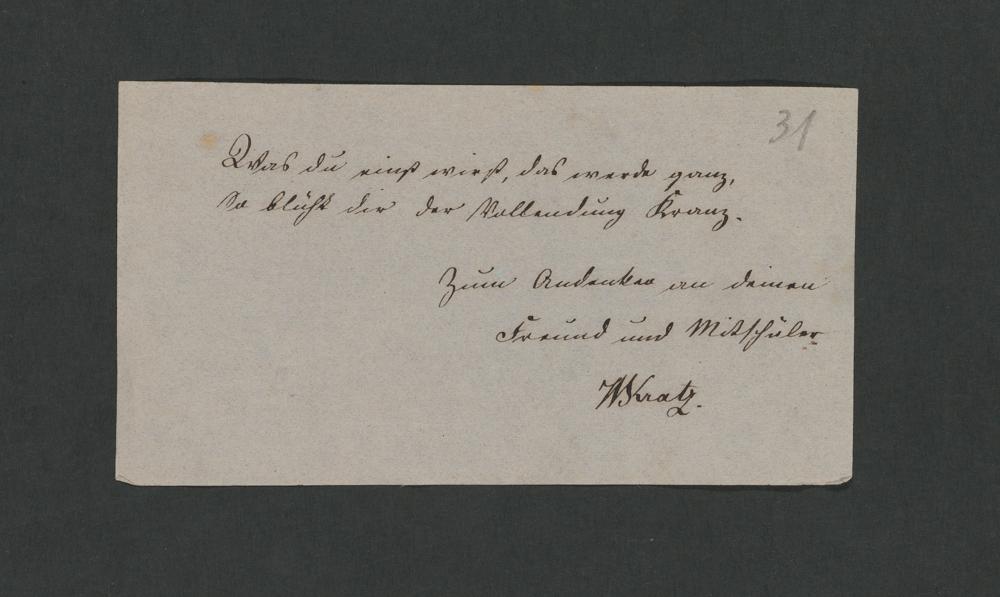 31
Was du einst wirst, das werde ganz,
So blüht dir der Vollendung Kranz.
Zum Andenken an deinen
Freund und Mitschüler
WKratz.